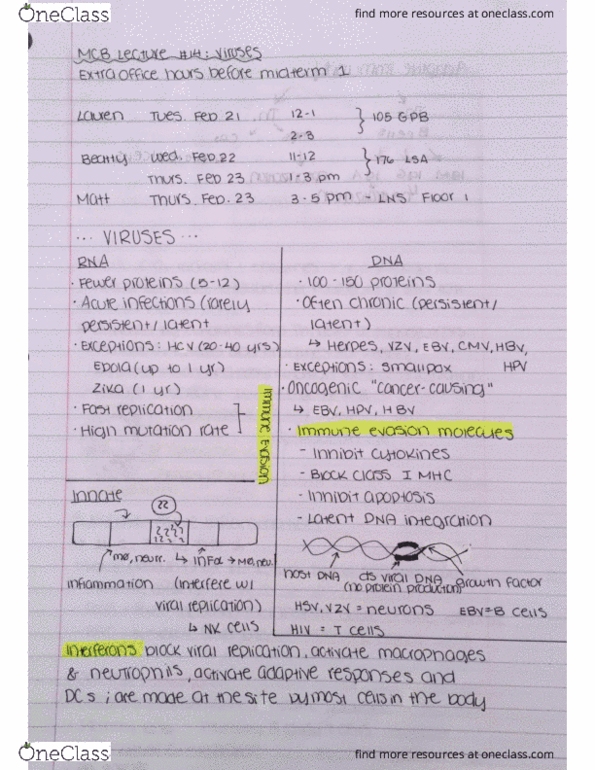 OneClass
find more resources at oneclass.com
MCB Lecture #14: Viruses
Extra office hours before midterm 1
Lauren Tues. Feb 21 12-1 } 105 GPB
2-3
Beatty Wed. Feb. 22 11-12 } 176 LSA
Thurs. Feb 23 1-3 pm
Matt Thurs. Feb. 23 3-5 pm - LNS Floor 1
... VIRUSES ...
RNA
· Fewer proteins (5-12)
· Acute infections (rarely
persistent/latent
· Exceptions: HCV (20-40 yrs)
Ebola (up to 1 yr)
Zika (1 yr)
· Fast replication
· High mutation rate
Immune Evasion
DNA
· 100-150 proteins
· Often chronic (persistent/
latent)
↳ Herpes, VZV, EBV, CMV, HBV,
HPV
· Exceptions: smallpox
· Oncogenic "cancer-causing"
↳ EBV, HPV, HBV
· Immune evasion molecules
- Inhibit cytokines
- Block Class I MHC
- Inhibit apoptosis
- Latent DNA integration
host DNA ds viral DNA growth factor
(no protein production)
HSV, VZV = neurons EBV = B cells
HIV = T cells
Innate
mø, neutr. ↳ INFα → Mø, neu.
inflammation (interfere w/
viral replication)
↳ NK cells
Interferons block viral replication, activate macrophages
& neutrophils, activate adaptive responses and
DCs ; are made at the site by most cells in the body
OneClass
find more resources at oneclass.com